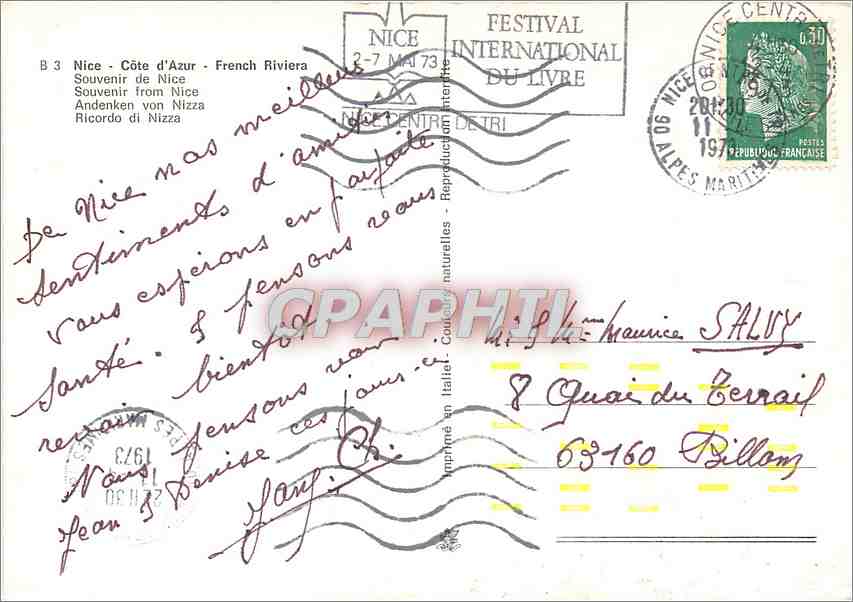 B 3 Nice - Côte d'Azur - French Riviera
Souvenir de Nice
Souvenir from Nice
Andenken von Nizza
Ricordo di Nizza
NICE
2-7 MAI 73
FESTIVAL
INTERNATIONAL
DU LIVRE
NICE CENTRE DE TRI
NICE CENTRE
06 NICE
20H30
11
197
ALPES MARITIMES
0,30
POSTES
REPUBLIQUE FRANÇAISE
De Nice nos meilleurs
sentiments d'amitiés
vous espérons en parfaite
santé. & pensons vous
revoir bientôt
Nous pensons voir
Jean & Denise ces jours-ci
CPAPHIL
Imprimé en Italie - Couleurs naturelles - Reproduction interdite
Mr & Mme Maurice SALVY
8 Quai du Terrail
63160 Billom
22H30
11
1973